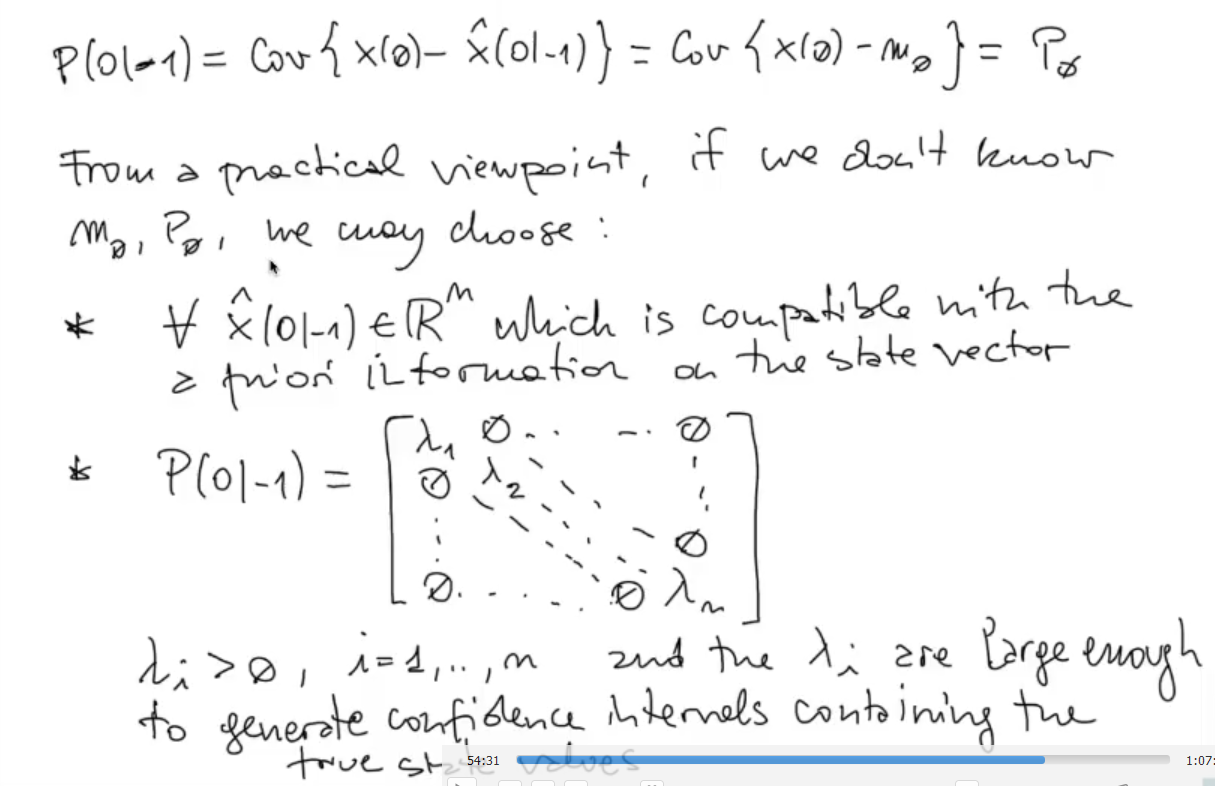 P(0|-1) = Cov { x(∅) - x̂(0|-1) } = Cov { x(∅) - m∅ } = P∅
From a practical viewpoint, if we don't know
m∅, P∅, we may choose :
* ∀ x̂(0|-1) ∈ ℝⁿ which is compatible with the
a priori information on the state vector
* P(0|-1) = [
λ₁ ∅ .. -.. ∅
∅ λ₂
∅
∅. . . . . ∅ λₙ
]
λᵢ > ∅, i = 1,..,n and the λᵢ are large enough
to generate confidence intervals containing the
true state values
54:31 1:07: